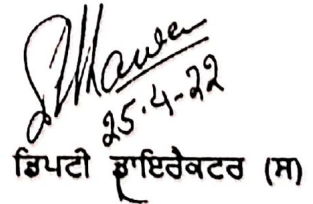 25.4-22
ਡਿਪਟੀ ਡਾਇਰੈਕਟਰ (ਸ)